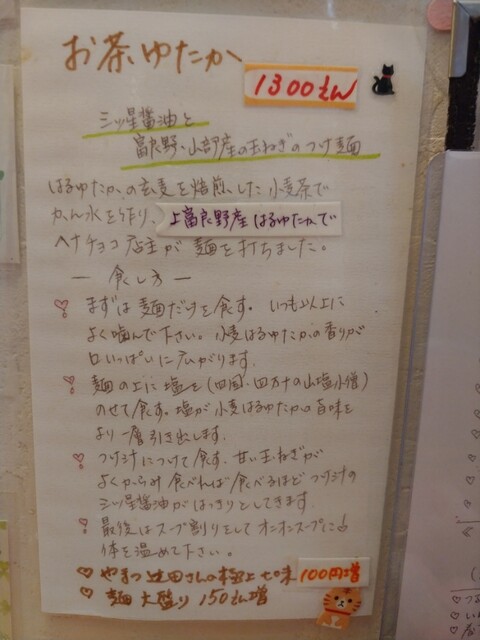 お茶ゆたか
1300えん
三ツ星醤油と
富良野・山部産の玉ねぎのつけ麺
はるゆたかの玄麦を焙煎した小麦茶で
かん水を作り、上富良野産はるゆたかで
ヘナチョコ店主が麺を打ちました。
ー食し方ー
♡まずは麺だけを食す。いつも以上に
よく噛んで下さい。小麦はるゆたかの香りが
口いっぱいに広がります。
♡麺の上に塩を(四国・四万十の山塩小僧)
のせて食す。塩が小麦はるゆたかの旨味を
より一層引き出します。
♡つけ汁につけて食す。甘い玉ねぎが
よくからみ食べれば食べるほどつけ汁の
三ツ星醤油がはっきりとしてきます。
♡最後はスープ割りをしてオニオンスープに♨
体を温めて下さい。
♡やまつ辻田さんの極上七味 100円増
♡麺大盛り150えん増